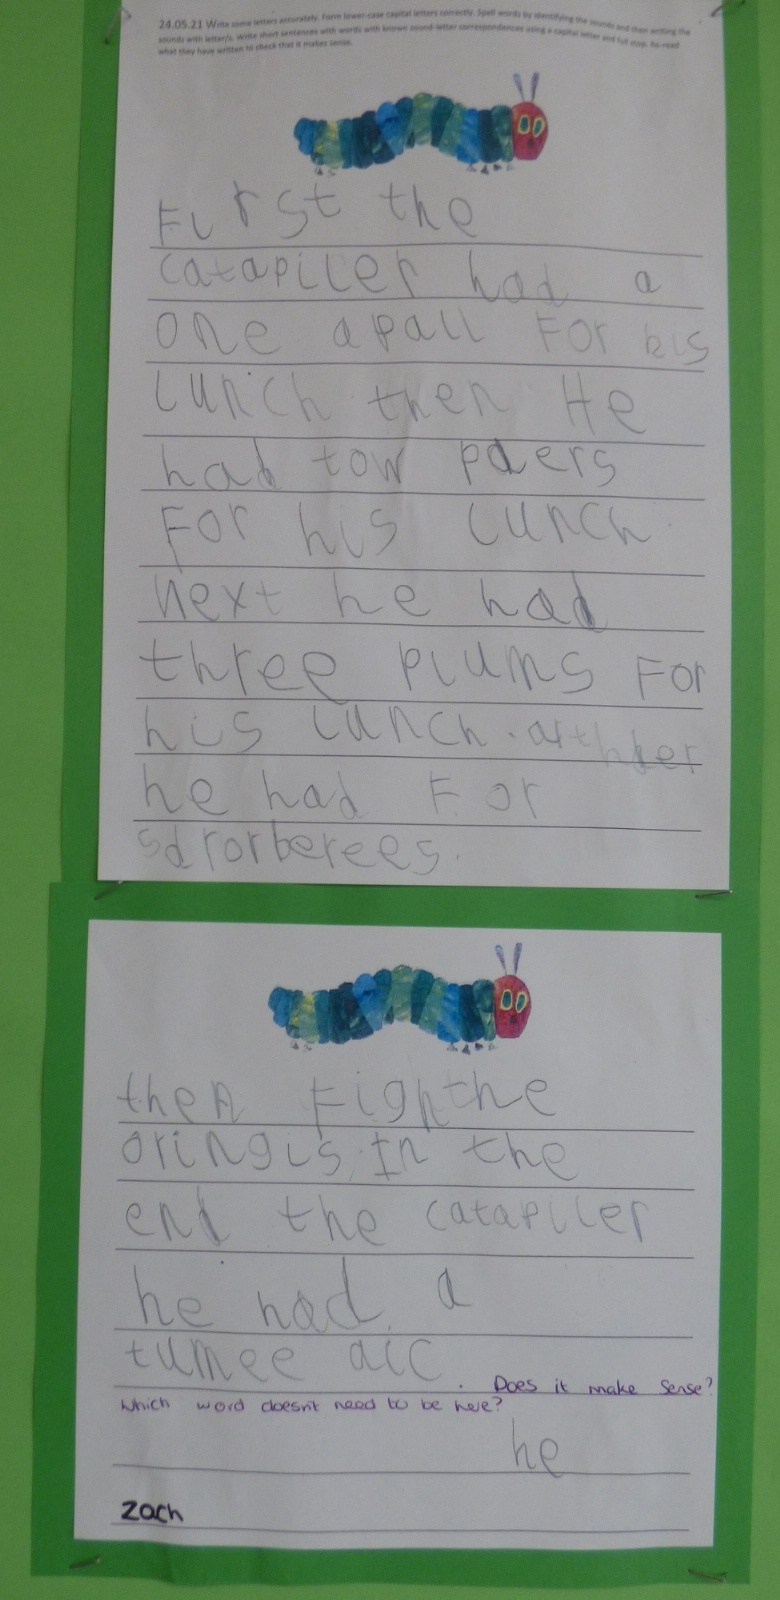 24.05.21 Write some letters accurately. Form lower-case capital letters correctly. Spell words by identifying the sounds and then writing the
sounds with letter/s. Write short sentences with words with known sound-letter correspondences using a capital letter and full stop. Re-read
what they have written to check that it makes sense.
First the
catapiller had a
one apall For his
lunch then He
had tow paers
For his lunch
next he had
three plums For
his lunch. arthder
he had For
sdrorberees.
then Fighthe
oringis. In the
end the catapiller
he had a
tumee aic.
Does it make sense?
Which word doesn't need to be here?
he
Zach